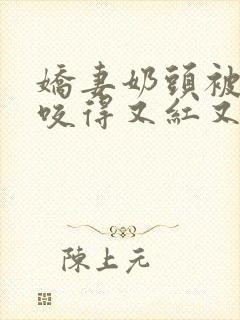 嬌妻奶頭被
咬得又紅又
陳上元